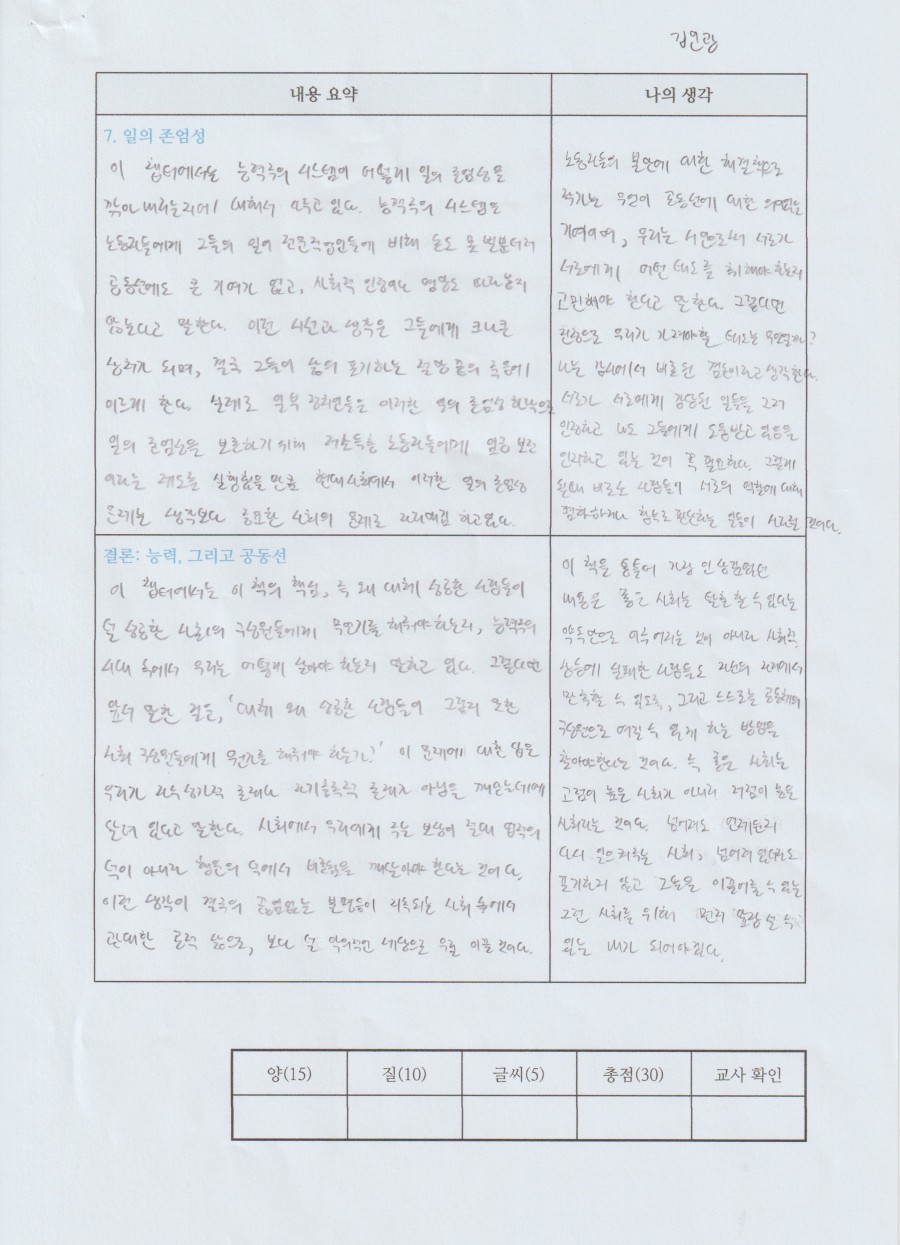 김연광
내용 요약
나의 생각
7. 일의 존엄성
이 챕터에서는 능력주의 시스템이 어떻게 일의 존엄성을
깎아내리는지에 대해서 다루고 있다. 능력주의 시스템은
노동자들에게 그들의 일이 전문직업인들에 비해 돈도 못 벌뿐더러
공동선에도 큰 기여가 없고, 사회적 인정이나 명망도 따라놓지
않는다고 말한다. 이런 시선과 생각은 그들에게 크나큰
상처가 되며, 결국 그들이 삶의 포기하는 절망 끝의 죽음에
이르게 한다. 실례로 일부 정치인들은 이러한 일의 존엄성 하락으로
일의 존엄성을 보존하기 위해 저소득층 노동자들에게 임금 보전
이라는 제도를 실행했을 만큼 현대사회에서 이러한 일의 존엄성
문제는 생각보다 중요한 사회의 문제로 자리매김 하고있다.
노동자들의 불안에 대한 해결책으로
작가는 무엇이 공동선에 대한
기여이며, 우리는 시민으로서 서로가
서로에게 어떤 태도를 취해야 하는지
고민해야 한다고 말한다. 그렇다면
진정으로 우리가 가져야할 태도는 무엇일까?
나는 감사에서 비롯된 겸손이라고 생각한다.
서로가 서로에게 감당된 일들을 그저
인정하고 나도 그들에게 도움받고 있음을
인지하고 있는 것이 꼭 필요하다. 그렇게
될때 비로소 사람들이 서로의 역할에 대해
폄하하거나 함부로 판단하는 일들이 사라질 것이다.
결론: 능력, 그리고 공동선
이 챕터에서는 이 책의 핵심, 즉 왜 대체 성공한 사람들이
덜 성공한 사회의 구성원들에게 무언가를 해줘야 하는지, 능력주의
시대 속에서 우리는 어떻게 살아야 하는지 말하고 있다. 그렇다면
앞서 말한 질문, '대체 왜 성공한 사람들이 그렇지 못한
사회 구성원들에게 무언가를 해줘야 하는가?' 이 문제에 대한 답은
우리가 자수성가적 존재나 자기충족적 존재가 아님을 깨닫는데에
달려 있다고 말한다. 사회에서 우리에게 주는 보상이 절대 업적의
덕이 아니라 행운의 덕에서 비롯됨을 깨달아야 한다는 것이다.
이런 생각이 결국의 끊임없는 분열들이 지속되는 사회 속에서
관대한 공적 삶으로, 보다 덜 악의적인 세상으로 우릴 이끌 것이다.
이 책을 통틀어 가장 인상깊었던
내용은 좋은 사회는 탈출할 수 있다는
약속만으로 이루어지는 것이 아니라 사회적
상승에 실패한 사람들도 자신의 자리에서
만족할 수 있도록, 그리고 스스로를 공동체의
구성원으로 여길 수 있게 하는 방법을
찾아야한다는 것이다. 즉 좋은 사회는
고점이 높은 사회가 아니라 저점이 높은
사회라는 것이다. 넘어져도 언제든지
다시 일으켜주는 사회, 넘어져 있더라도
포기하지 않고 그들을 이끌어줄 수 있는
그런 사회를 위해 먼저 말할 수
있는 내가 되어야겠다.
양(15)
질(10)
글씨(5)
총점(30)
교사 확인